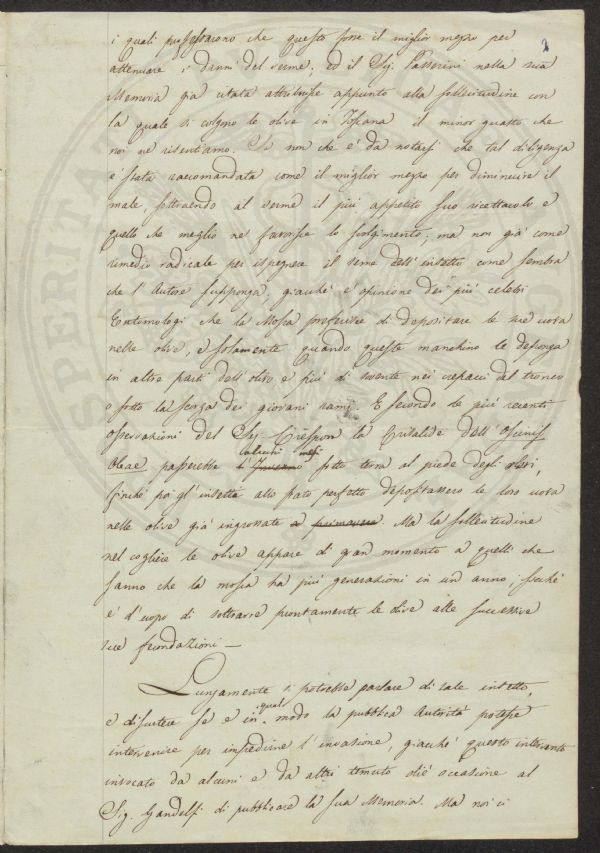 2
i quali pensarono che questo fosse il miglior mezzo per
attenuare i danni del verme, ed il Sig. Passerini nella sua
Memoria già citata attribuisce appunto alla sollecitudine con
la quale si colgono le olive in Toscana il minor guasto che
noi ne risentiamo. Se non che è da notarsi che tal diligenza
è stata raccomandata come il miglior mezzo per diminuire il
male, sottraendo al verme il più appetito suo ricettacolo e
quello che meglio ne favorisce lo svolgimento; ma non già come
rimedio radicale per ispegnere il seme dell'insetto come sembra
che l'Autore supponga, giacchè è opinione dei più celebri
Entomologi che la Mosca preferisce di depositare le sue uova
nelle olive, e solamente quando queste manchino le deponga
in altre parti dell'olivo e più di sovente nei crepacci del tronco
o sotto la scorza dei giovani rami. E secondo le più recenti
osservazioni del Sig. Crespon la Crisalide dell'Oscinis
Oleae passerebbe alcuni mesi sotto terra al piede degli olivi,
finchè poi gl'insetti allo stato perfetto depositassero le loro uova
nelle olive già ingrossate a primavera. Ma la sollecitudine
nel cogliere le olive appare di gran momento a quelli che
sanno che la mosca ha più generazioni in un anno; sicchè
è d'uopo di sottrarre prontamente le olive alle successive
sue fecondazioni —
Lungamente si potrebbe parlare di tale insetto,
e discutere se e in qual modo la pubblica Autorità potesse
intervenire per impedirne l'invasione, giacchè questo intervento
invocato da alcuni e da altri temuto diè occasione al
Sig. Gandolfi di pubblicare la sua Memoria. Ma noi ci
ASPERITA